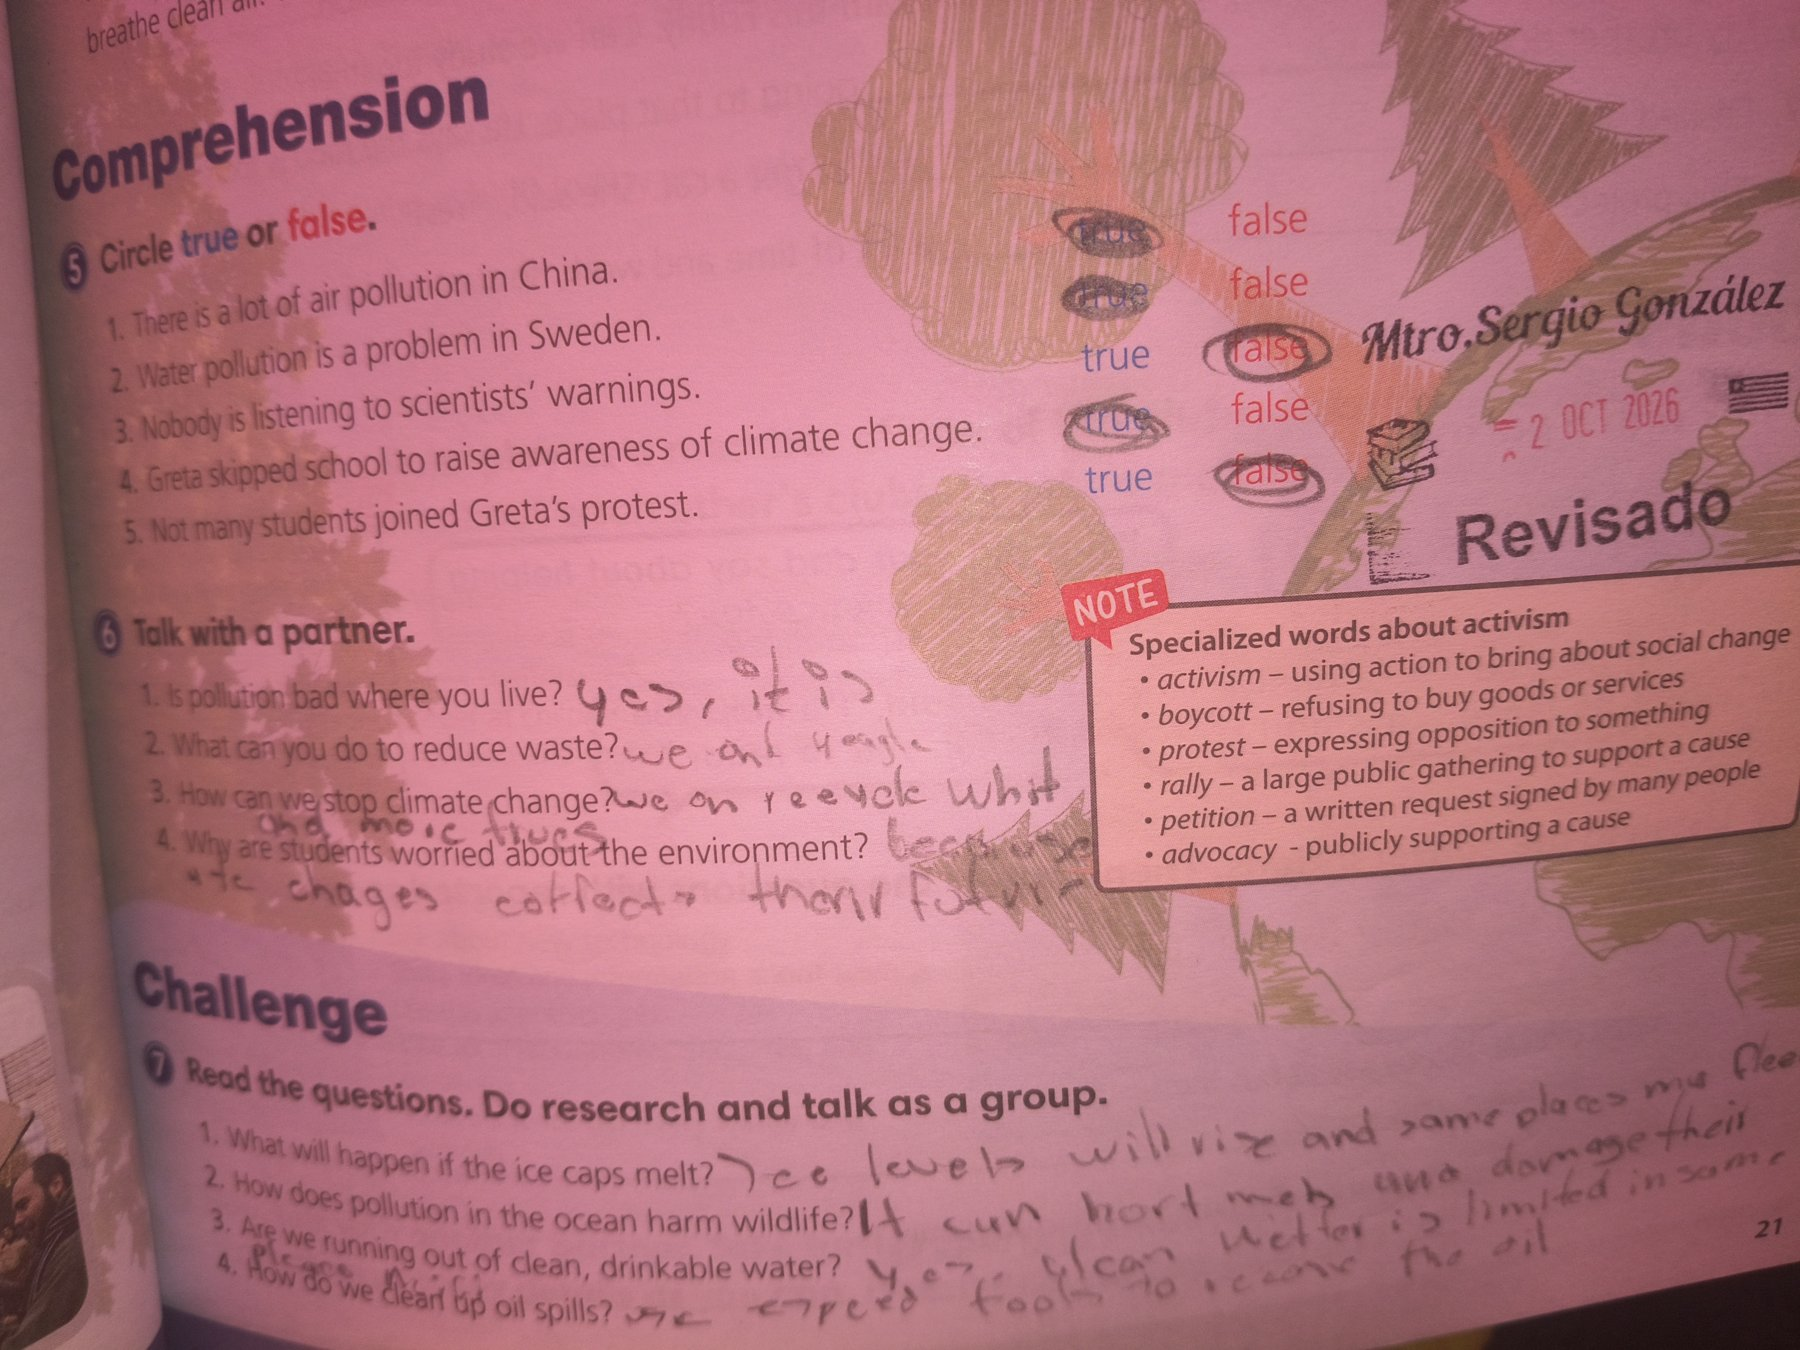 breathe clean air.
Comprehension
5 Circle true or false.
1. There is a lot of air pollution in China. true false
2. Water pollution is a problem in Sweden. true false
3. Nobody is listening to scientists' warnings. true false
4. Greta skipped school to raise awareness of climate change. true false
5. Not many students joined Greta's protest. true false
Mtro. Sergio González
2 OCT 2026
Revisado
6 Talk with a partner.
1. Is pollution bad where you live? yes, it is
2. What can you do to reduce waste? we
3. How can we stop climate change? we
and more
4. Why are students worried about the environment? because
chages
NOTE
Specialized words about activism
• activism – using action to bring about social change
• boycott – refusing to buy goods or services
• protest – expressing opposition to something
• rally – a large public gathering to support a cause
• petition – a written request signed by many people
• advocacy - publicly supporting a cause
Challenge
7 Read the questions. Do research and talk as a group.
1. What will happen if the ice caps melt? levels will rise and some places
2. How does pollution in the ocean harm wildlife? It can damage their
3. Are we running out of clean, drinkable water? yes. clean is limited in some
4. How do we clean up oil spills? tools to the oil
21